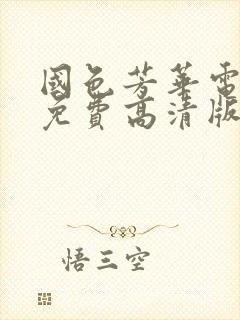 國色芳華電
免費高清版
悟三空